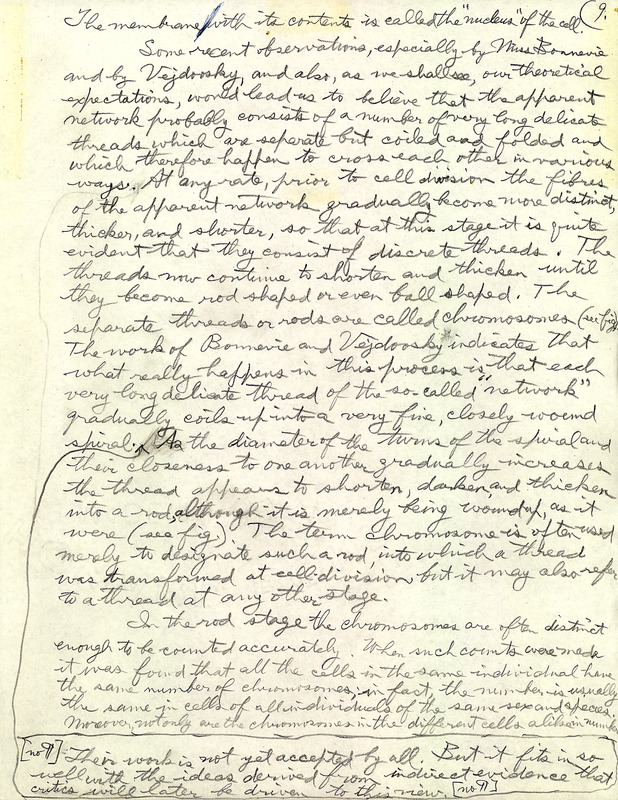 9.
The membrane with its contents is called the "nucleus" of the cell.
Some recent observations, especially by Miss Bonnevie
and by Vejdovsky, and also, as we shall see, our theoretical
expectations, would lead us to believe that the apparent
network probably consists of a number of very long delicate
threads which are separate but coiled and folded and
which therefore happen to cross each other in various
ways. At any rate, prior to cell division the fibres
of the apparent network gradually become more distinct,
thicker, and shorter, so that at this stage it is quite
evident that they consist of discrete threads. The
threads now continue to shorten and thicken until
they become rod shaped or even ball shaped. The
separate threads or rods are called chromosomes (see fig)
The work of Bonnevie and Vejdovsky indicates that
what really happens in this process is that each
very long delicate thread of the so-called "network"
gradually coils up into a very fine, closely wound
spiral. As the diameter of the turns of the spiral and
their closeness to one another gradually increases
the thread appears to shorten, darken, and thicken
into a rod, although it is merely being wound up, as it
were (see fig.). The term chromosome is often used
merely to designate such a rod, into which a thread
was transformed at cell division, but it may also refer
to a thread at any other stage.
In the rod stage the chromosomes are often distinct
enough to be counted accurately. When such counts were made
it was found that all the cells in the same individual have
the same number of chromosomes; in fact, the number is usually
the same in cells of all individuals of the same sex and species.
Moreover, not only are the chromosomes in the different cells alike in number
[no ¶] Their work is not yet accepted by all. But it fits in so
well with the ideas derived from indirect evidence that
critics will later be driven to this view. [no ¶]